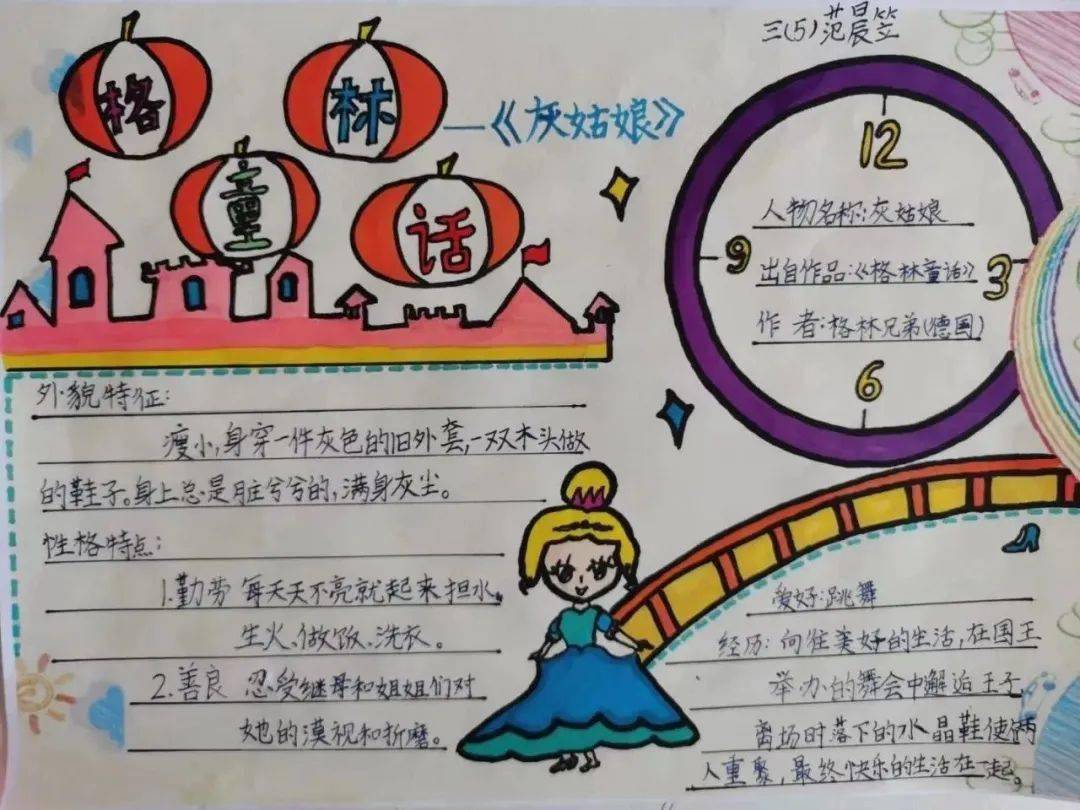 三(5)范晨笠
格林
童话
——《灰姑娘》
12
3
6
9
人物名称:灰姑娘
出自作品:《格林童话》
作者:格林兄弟(德国)
外貌特征:
瘦小,身穿一件灰色的旧外套,一双木头做
的鞋子。身上总是脏兮兮的,满身灰尘。
性格特点:
1.勤劳 每天天不亮就起来担水。
生火、做饭、洗衣。
2.善良 忍受继母和姐姐们对
她的漠视和折磨。
爱好:跳舞
经历:向往美好的生活,在国王
举办的舞会中邂逅王子
离场时落下的水晶鞋使俩
人重聚,最终快乐的生活在一起。